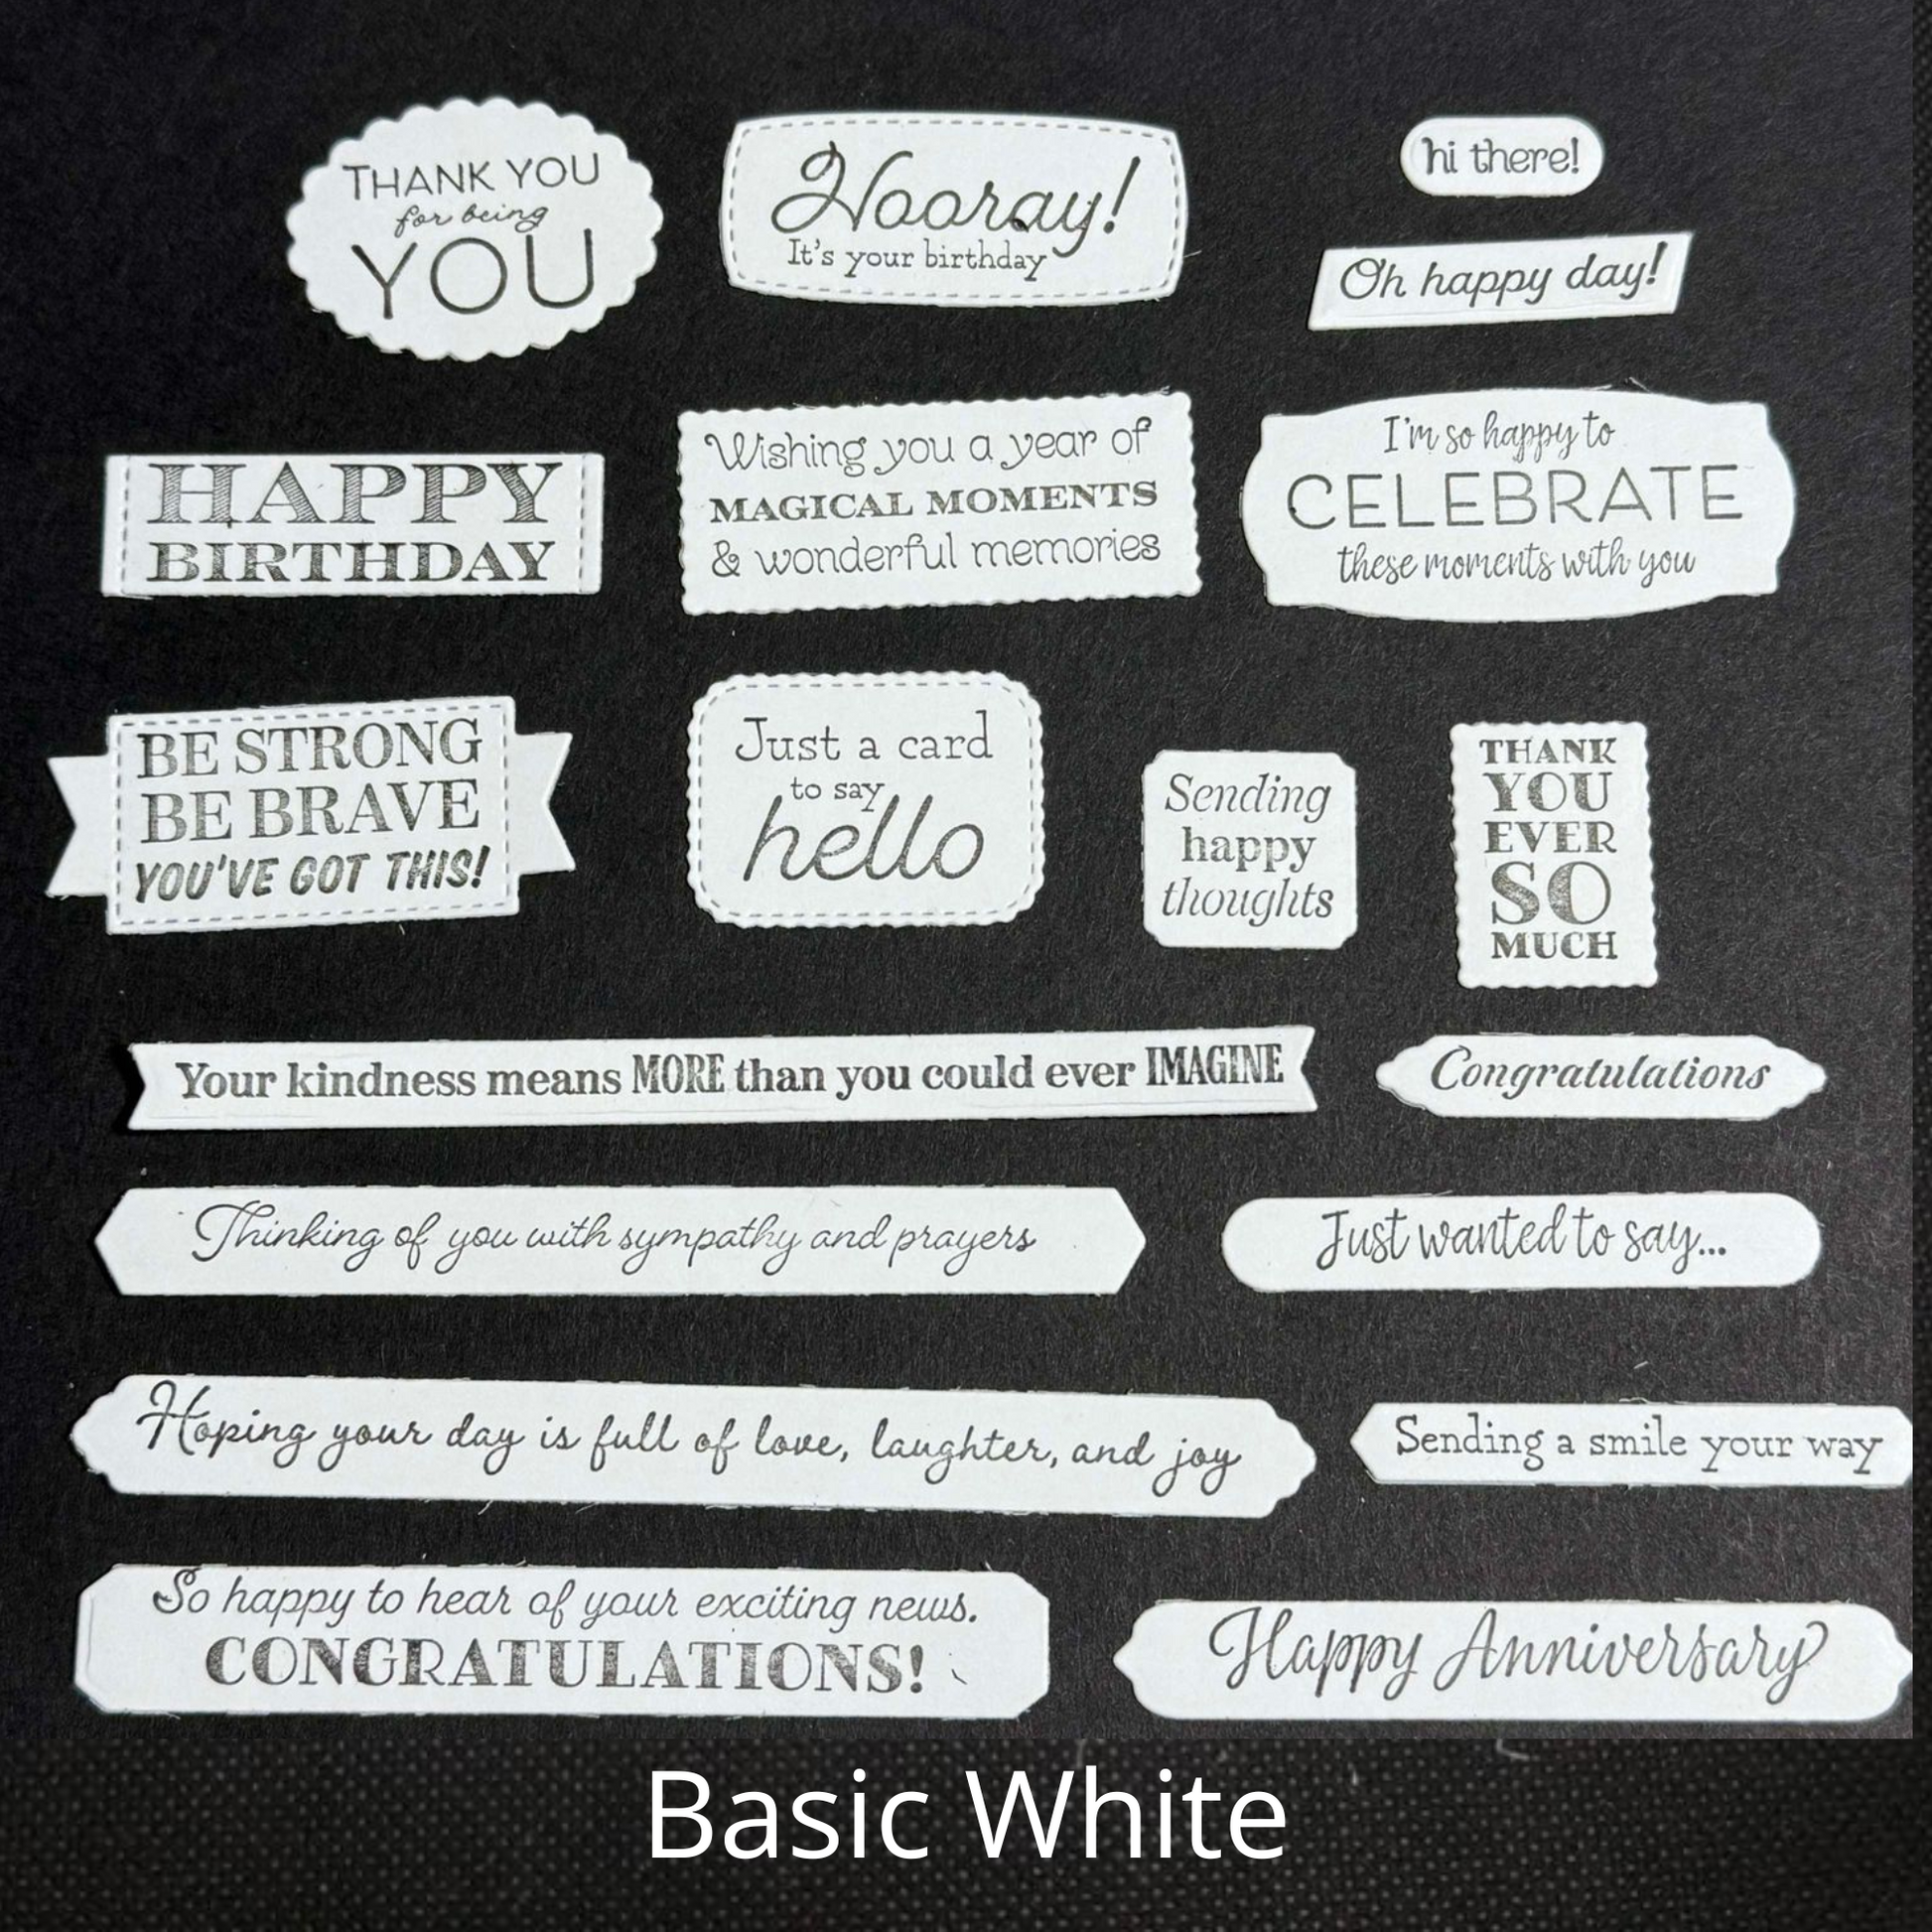 THANK YOU
for being
YOU
Hooray!
It's your birthday
hi there!
Oh happy day!
HAPPY
BIRTHDAY
Wishing you a year of
MAGICAL MOMENTS
& wonderful memories
I'm so happy to
CELEBRATE
these moments with you
BE STRONG
BE BRAVE
YOU'VE GOT THIS!
Just a card
to say
hello
Sending
happy
thoughts
THANK
YOU
EVER
SO
MUCH
Your kindness means MORE than you could ever IMAGINE
Congratulations
Thinking of you with sympathy and prayers
Just wanted to say...
Hoping your day is full of love, laughter, and joy
Sending a smile your way
So happy to hear of your exciting news.
CONGRATULATIONS!
Happy Anniversary
Basic White